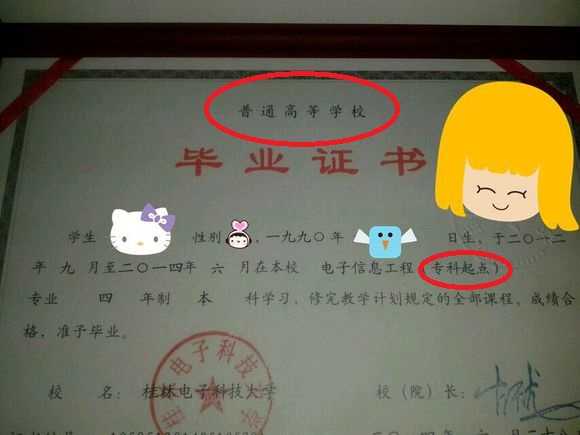 普通高等学校
毕业证书
学生 性别 ，一九九〇年 日生，于二〇一二
年 九 月至二〇一四年 六 月在本校 电子信息工程（专科起点）
专业 四 年制 本 科学习，修完教学计划规定的全部课程，成绩合
格，准予毕业。
校 名：桂林电子科技大学 校（院）长：